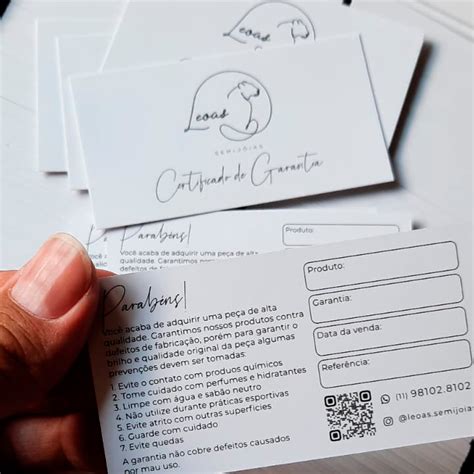 Leoas
SEMIJOIAS
Certificado de Garantia
Parabéns!
Você acaba de adquirir uma peça de alta
qualidade. Garantimos
defeitos de
Produto:
Parabéns!
Você acaba de adquirir uma peça de alta
qualidade. Garantimos nossos produtos contra
defeitos de fabricação, porém para garantir o
brilho e qualidade original da peça algumas
prevenções devem ser tomadas:
1. Evite o contato com produtos químicos
2. Tome cuidado com perfumes e hidratantes
3. Limpe com água e sabão neutro
4. Não utilize durante práticas esportivas
5. Evite atrito com outras superfícies
6. Guarde com cuidado
7. Evite quedas
A garantia não cobre defeitos causados
por mau uso.
Produto:
Garantia:
Data da venda:
Referência:
(11) 98102.8102
@leoas.semijoia